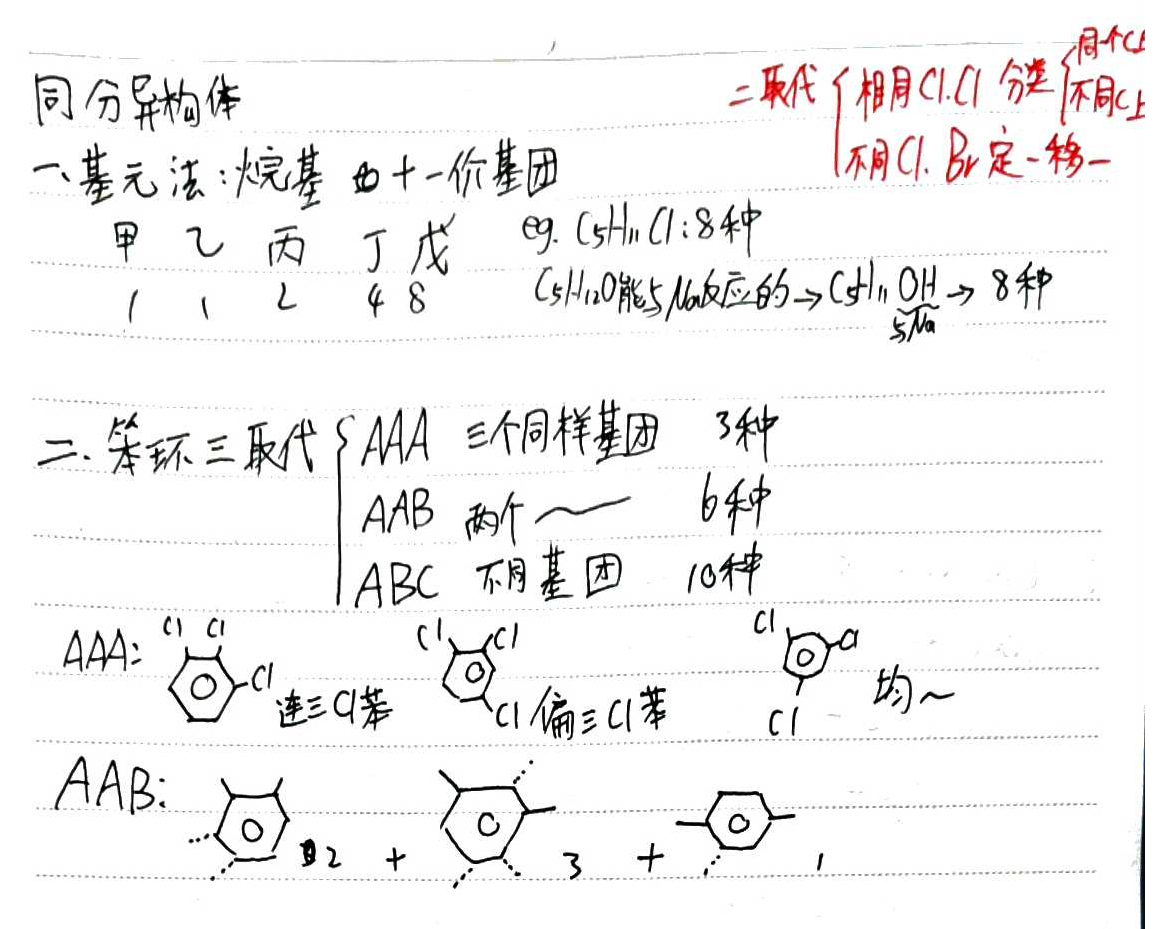 同分异构体
二取代 { 相同Cl.Cl 分类 { 同个C上
不同C上
不同Cl. Br 定一移一
一、基元法:烷基 + 一价基团
甲 乙 丙 丁 戊
1 1 2 4 8
eg. C5H11Cl:8种
C5H12O能与Na反应的→C5H11OH→ 8种
与Na
二. 笨环三取代 { AAA 三个同样基团 3种
AAB 两个～ 6种
ABC 不同基团 10种
AAA:
Cl Cl
Cl 连三Cl苯
Cl Cl
Cl 偏三Cl苯
Cl Cl
Cl 均～
AAB:
2 + 3 + 1